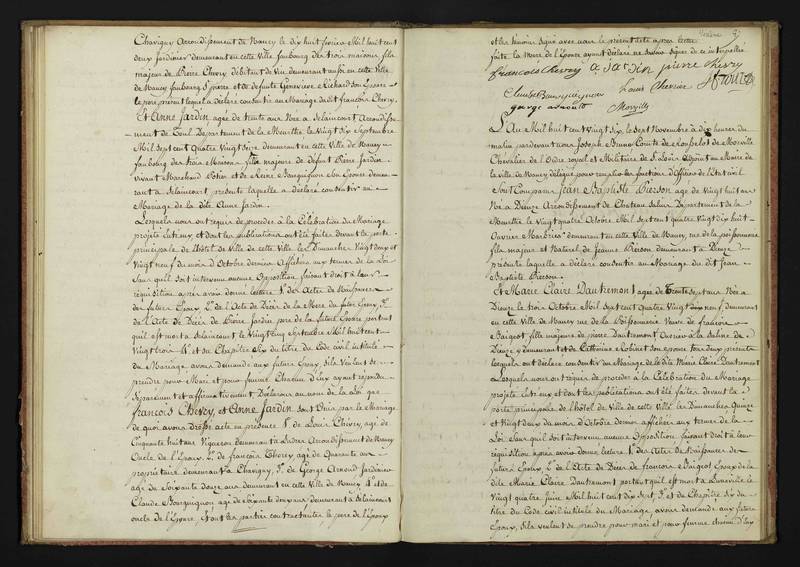 Chavigny Arrondissement de Nancy le dix huit Mil huit cent
deux jardinier demeurant en cette Ville faubourg des trois maisons, fils
majeur de Pierre Chevry débitant de Vin demeurant aussi en cette Ville
de Nancy faubourg St pierre et de défunte Geneviève Richard son Epouse
le père présent lequel a déclaré consentir au Mariage dudit françois Chevry.
Et Anne Jardin agée de trente ans Née à Selaincourt Arrondisse-
ment de Toul Département de la Meurthe, le Vingt six Septembre
Mil Sept cent Quatre Vingt seize, demeurant en cette Ville de Nancy
faubourg des trois Maisons fille majeure de défunt Pierre Jardin
vivant Marchand et de Reine Bourguignon son Epouse demeu-
rant à Selaincourt, présente laquelle a déclaré consentir au
Mariage de la dite Anne Jardin.
Lesquels nous ont requis de procéder à la Célébration du Mariage
projeté entr'eux et dont les publications ont été faites devant la porte
principale de l'hôtel de Ville de cette Ville les Dimanches Vingt deux et
Vingt neuf du mois d'Octobre dernier Affichées aux termes de la Loi
Sans qu'il soit intervenu aucune Opposition, faisant droit à leur
réquisition après avoir donné lecture 1° des Actes de Naissances
des futurs Epoux, 2° de l'Acte de Décès de la Mère du futur Epoux, 3°
de l'Acte de Décès de Pierre Jardin père de la future Epouse portant
qu'il est mort à Selaincourt le Vingt cinq Septembre Mil huit cent
Vingt trois 4° et du Chapitre Six du titre du Code civil intitulé
du Mariage, avons demandé aux futurs Epoux, s'ils Veulent se
prendre pour Mari et pour femme Chacun d'Eux ayant répondu
Séparément et affirmativement Déclarons au nom de la Loi que
françois Chevry, et Anne Jardin sont Unis par le Mariage
de quoi avons dressé acte en présence 1° de Louis Chevry, agé de
Cinquante huit ans Vigneron demeurant à Ludres Arrondissement de Nancy
Oncle de l'Epoux, 2° de françois Thorey agé de Quarante ans
propriétaire demeurant à Chavigny, 3° de George Arnould Jardinier
agé de Soixante douze ans demeurant en cette Ville de Nancy 4° et de
Claude Bourguignon agé de Soixante deux ans demeurant à Selaincourt
oncle de l'Epouse, Et ont les parties contractantes le père de l'Epoux
et les témoins signé avec nous le présent acte après lecture
faite la Mère de l'Epouse ayant déclaré ne savoir signer de ce interpellée
françois Chevry a jardin pierre chevry
Claude Bourguignon Louis Chevrier
george arnould Morville
L'An Mil huit cent Vingt Six, le Sept Novembre à dix heures du
matin pardevant nous Joseph Bruno Comte de Rouhelot de Morville
Chevalier de l'Ordre royal et Militaire de St Louis Adjoint au Maire de
la ville de Nancy délégué pour remplir les fonctions d'officier de l'Etat civil
Sont Comparus Jean Baptiste Pierson agé de Vingt huit ans
Né à Dieuze Arrondissement de Château Salins Département de la
Meurthe le Vingt quatre Octobre Mil Sept cent quatre Vingt dix huit
Ouvrier Marbrier demeurant en cette Ville de Nancy, rue de la poissonnerie
fils majeur et Naturel de Jeanne Pierson demeurant à Dieuze
présente laquelle a déclaré consentir au Mariage du dit Jean
Baptiste Pierson.
Et Marie Claire Dautremont agée de trente sept ans Née à
Dieuze le trois Octobre Mil Sept cent Quatre Vingt neuf demeurant
en cette Ville de Nancy rue de la Poissonnerie Veuve de françois
Bargot fille majeure de pierre Dautremont Ouvrier à la Saline de
Dieuze y demeurant et de Catherine son epouse tous deux présents
lesquels ont déclaré consentir au Mariage de la dite Marie Claire Dautremont
Lesquels nous ont requis de procéder à la Célébration du Mariage
projeté entr'eux et dont les publications ont été faites devant la
porte principale de l'hôtel de Ville de cette Ville les Dimanches Quinze
et Vingt deux du mois d'Octobre dernier affichées aux termes de la
Loi. Sans qu'il soit intervenu aucune Opposition, faisant droit à leur
réquisition après avoir donné lecture 1° des Actes de Naissances des
futurs Epoux, 2° de l'Acte de Décès de françois Bargot Epoux de la
dite Marie Claire Dautremont portant qu'il est mort à Lunéville le
Vingt quatre Juin Mil huit cent dix Sept, 3° et du Chapitre Six du
titre du Code civil intitulé du Mariage, avons demandé aux futurs
Epoux, s'ils veulent se prendre pour mari et pour femme chacun d'Eux